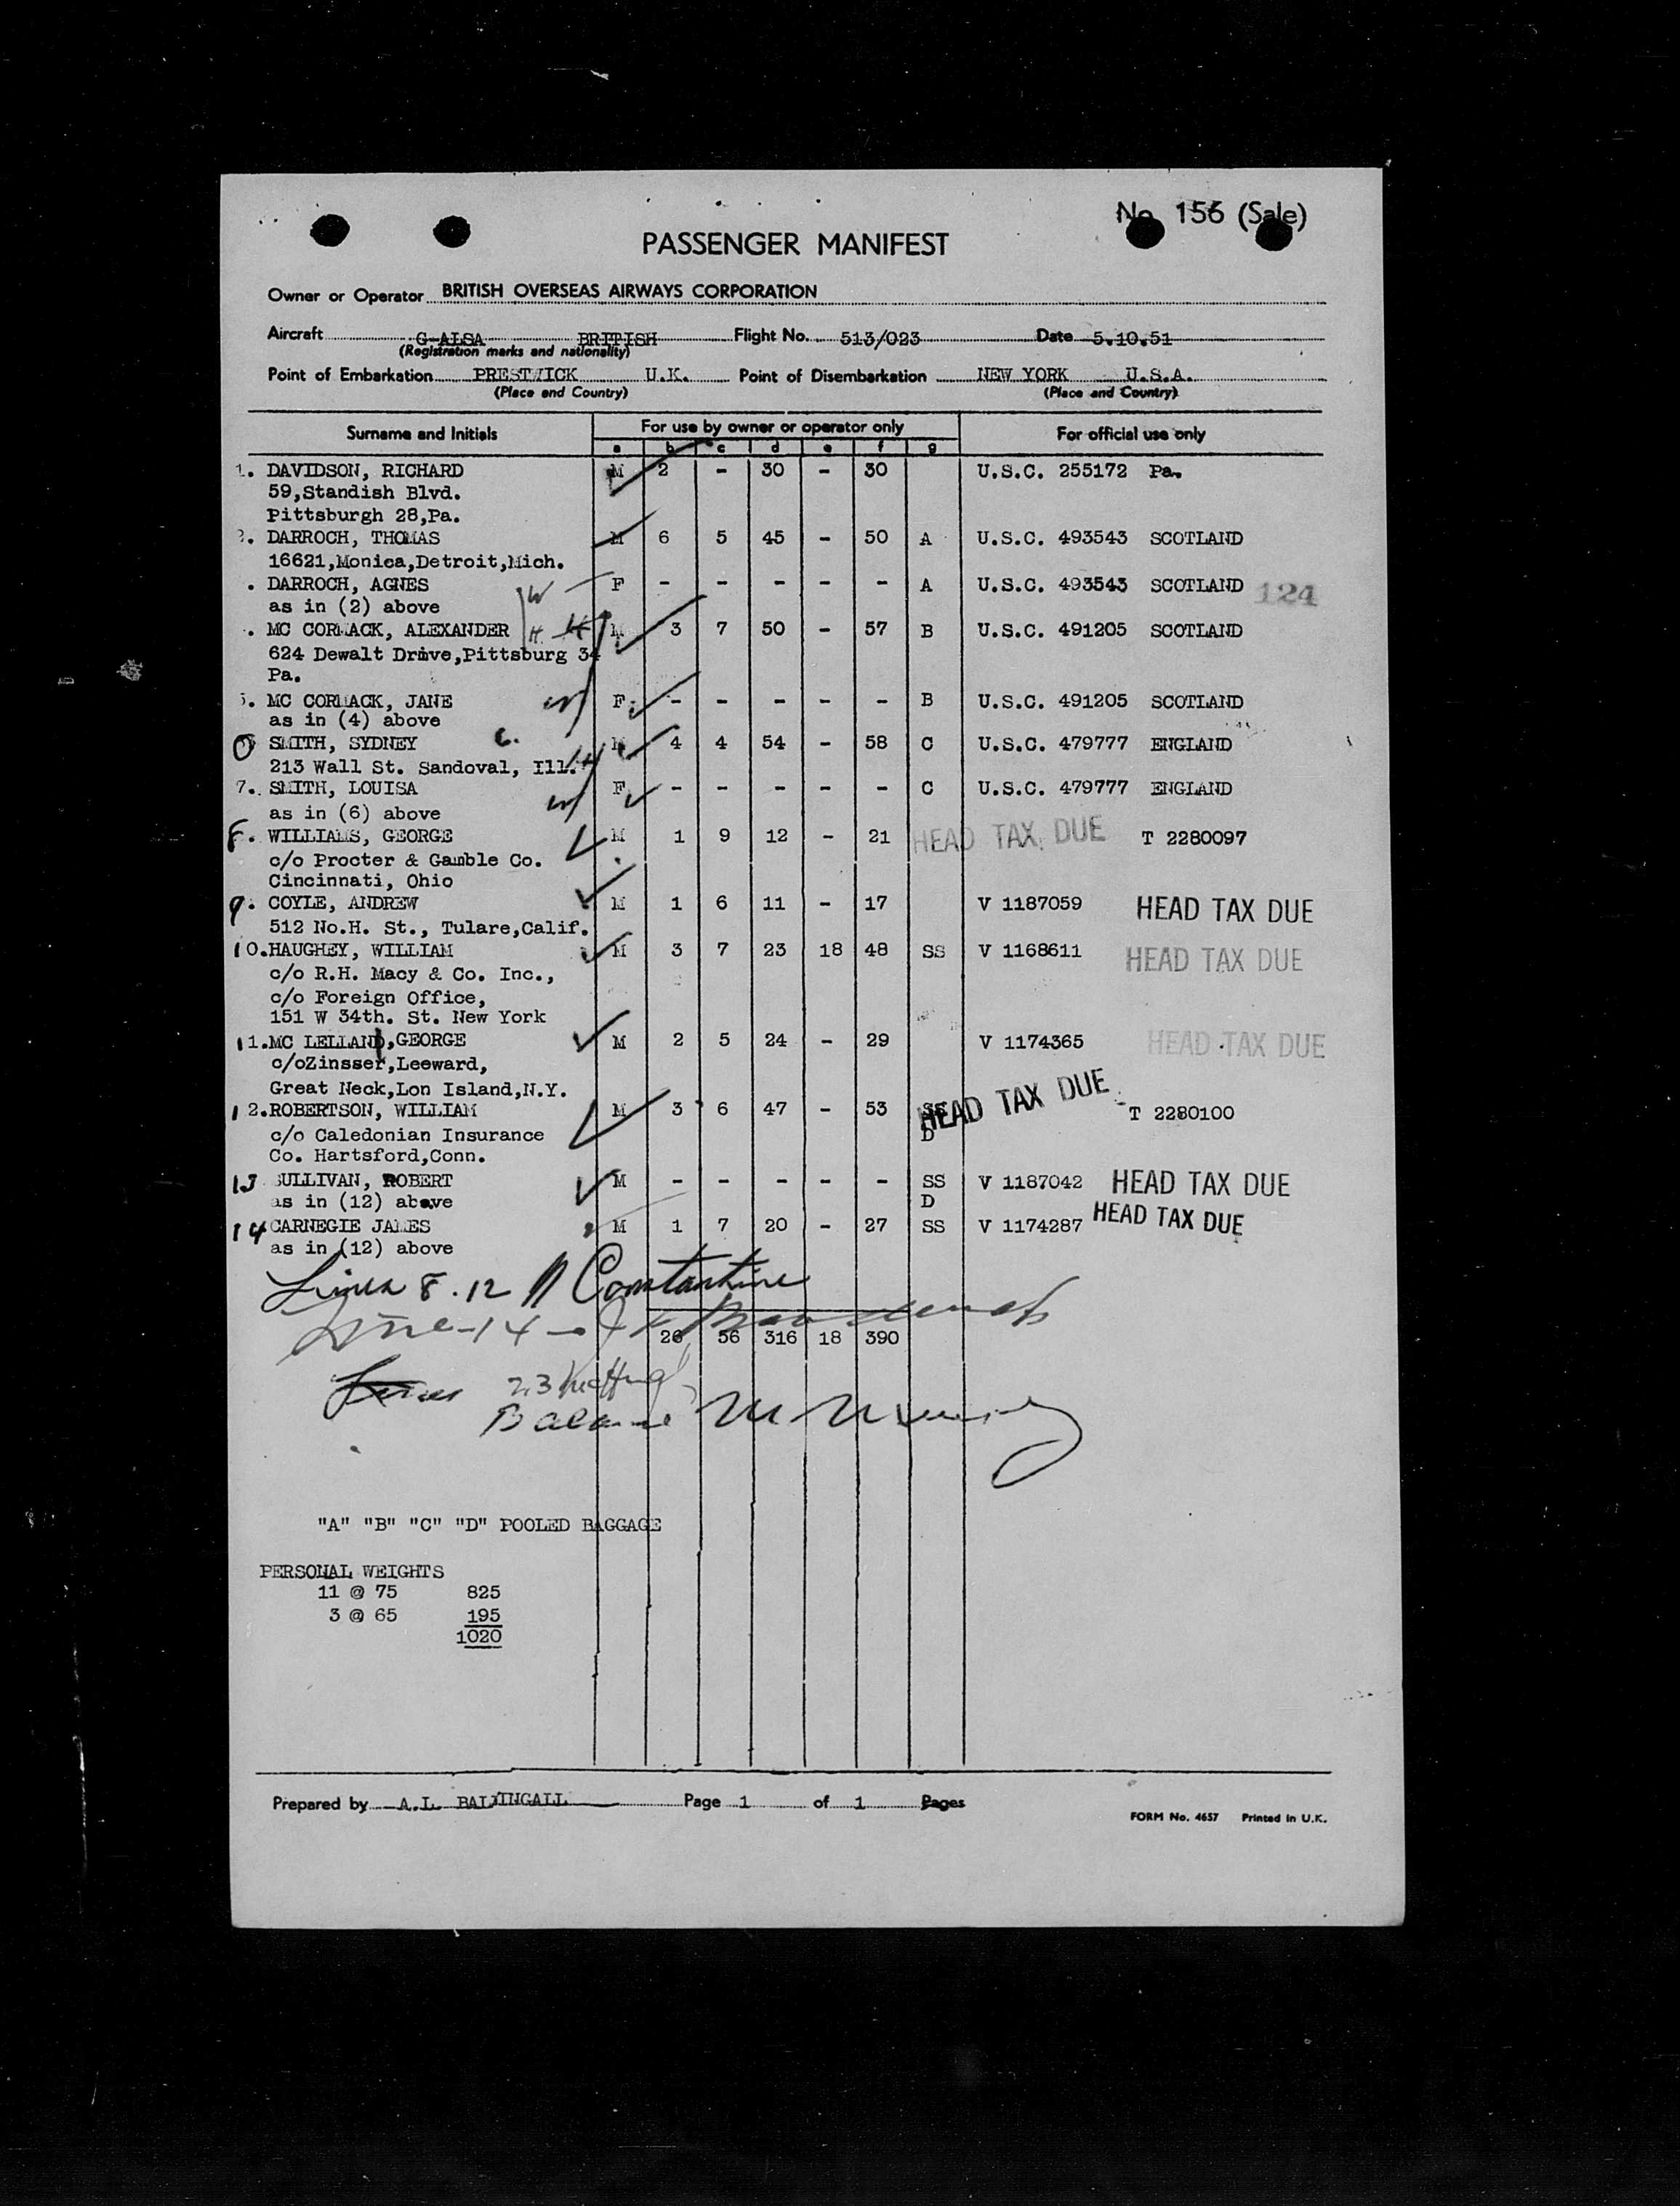 No. 156 (Sale)
PASSENGER MANIFEST
Owner or Operator BRITISH OVERSEAS AIRWAYS CORPORATION
Aircraft G-ALSA BRITISH Flight No. 513/023 Date 5.10.51
(Registration marks and nationality)
Point of Embarkation PRESTWICK U.K. Point of Disembarkation NEW YORK U.S.A.
(Place and Country) (Place and Country)
Surname and Initials For use by owner or operator only For official use only
a b c d e f g
1. DAVIDSON, RICHARD M 2 - 30 - 30 U.S.C. 255172 Pa.
59,Standish Blvd.
Pittsburgh 28,Pa.
2. DARROCH, THOMAS M 6 5 45 - 50 A U.S.C. 493543 SCOTLAND
16621,Monica,Detroit,Mich.
. DARROCH, AGNES W F - - - - - A U.S.C. 493543 SCOTLAND 124
as in (2) above
. MC CORMACK, ALEXANDER H. H M 3 7 50 - 57 B U.S.C. 491205 SCOTLAND
624 Dewalt Drive,Pittsburg 34
Pa.
5. MC CORMACK, JANE W F - - - - - B U.S.C. 491205 SCOTLAND
as in (4) above
SMITH, SYDNEY C. M 4 4 54 - 58 C U.S.C. 479777 ENGLAND
213 Wall St. Sandoval, Ill. H
7. SMITH, LOUISA W F - - - - - C U.S.C. 479777 ENGLAND
as in (6) above
8. WILLIAMS, GEORGE M 1 9 12 - 21 HEAD TAX DUE T 2280097
c/o Procter & Gamble Co.
Cincinnati, Ohio
9. COYLE, ANDREW M 1 6 11 - 17 V 1187059 HEAD TAX DUE
512 No.H. St., Tulare,Calif.
10.HAUGHEY, WILLIAM M 3 7 23 18 48 SS V 1168611 HEAD TAX DUE
c/o R.H. Macy & Co. Inc.,
c/o Foreign Office,
151 W 34th. St. New York
11.MC LELLAND,GEORGE M 2 5 24 - 29 V 1174365 HEAD TAX DUE
c/oZinsser,Leeward,
Great Neck,Lon Island,N.Y.
12.ROBERTSON, WILLIAM M 3 6 47 - 53 SS HEAD TAX DUE T 2280100
c/o Caledonian Insurance D
Co. Hartsford,Conn.
13 SULLIVAN, ROBERT M - - - - - SS V 1187042 HEAD TAX DUE
as in (12) above D
14 CARNEGIE JAMES M 1 7 20 - 27 SS V 1174287 HEAD TAX DUE
as in (12) above
Lines 8.12 Constantine
Line-14-
26 56 316 18 390
Lines 2,3
Balance
"A" "B" "C" "D" POOLED BAGGAGE
PERSONAL WEIGHTS
11 @ 75 825
3 @ 65 195
1020
Prepared by A.L. BALLINGALL Page 1 of 1 Pages
FORM No. 4657 Printed in U.K.